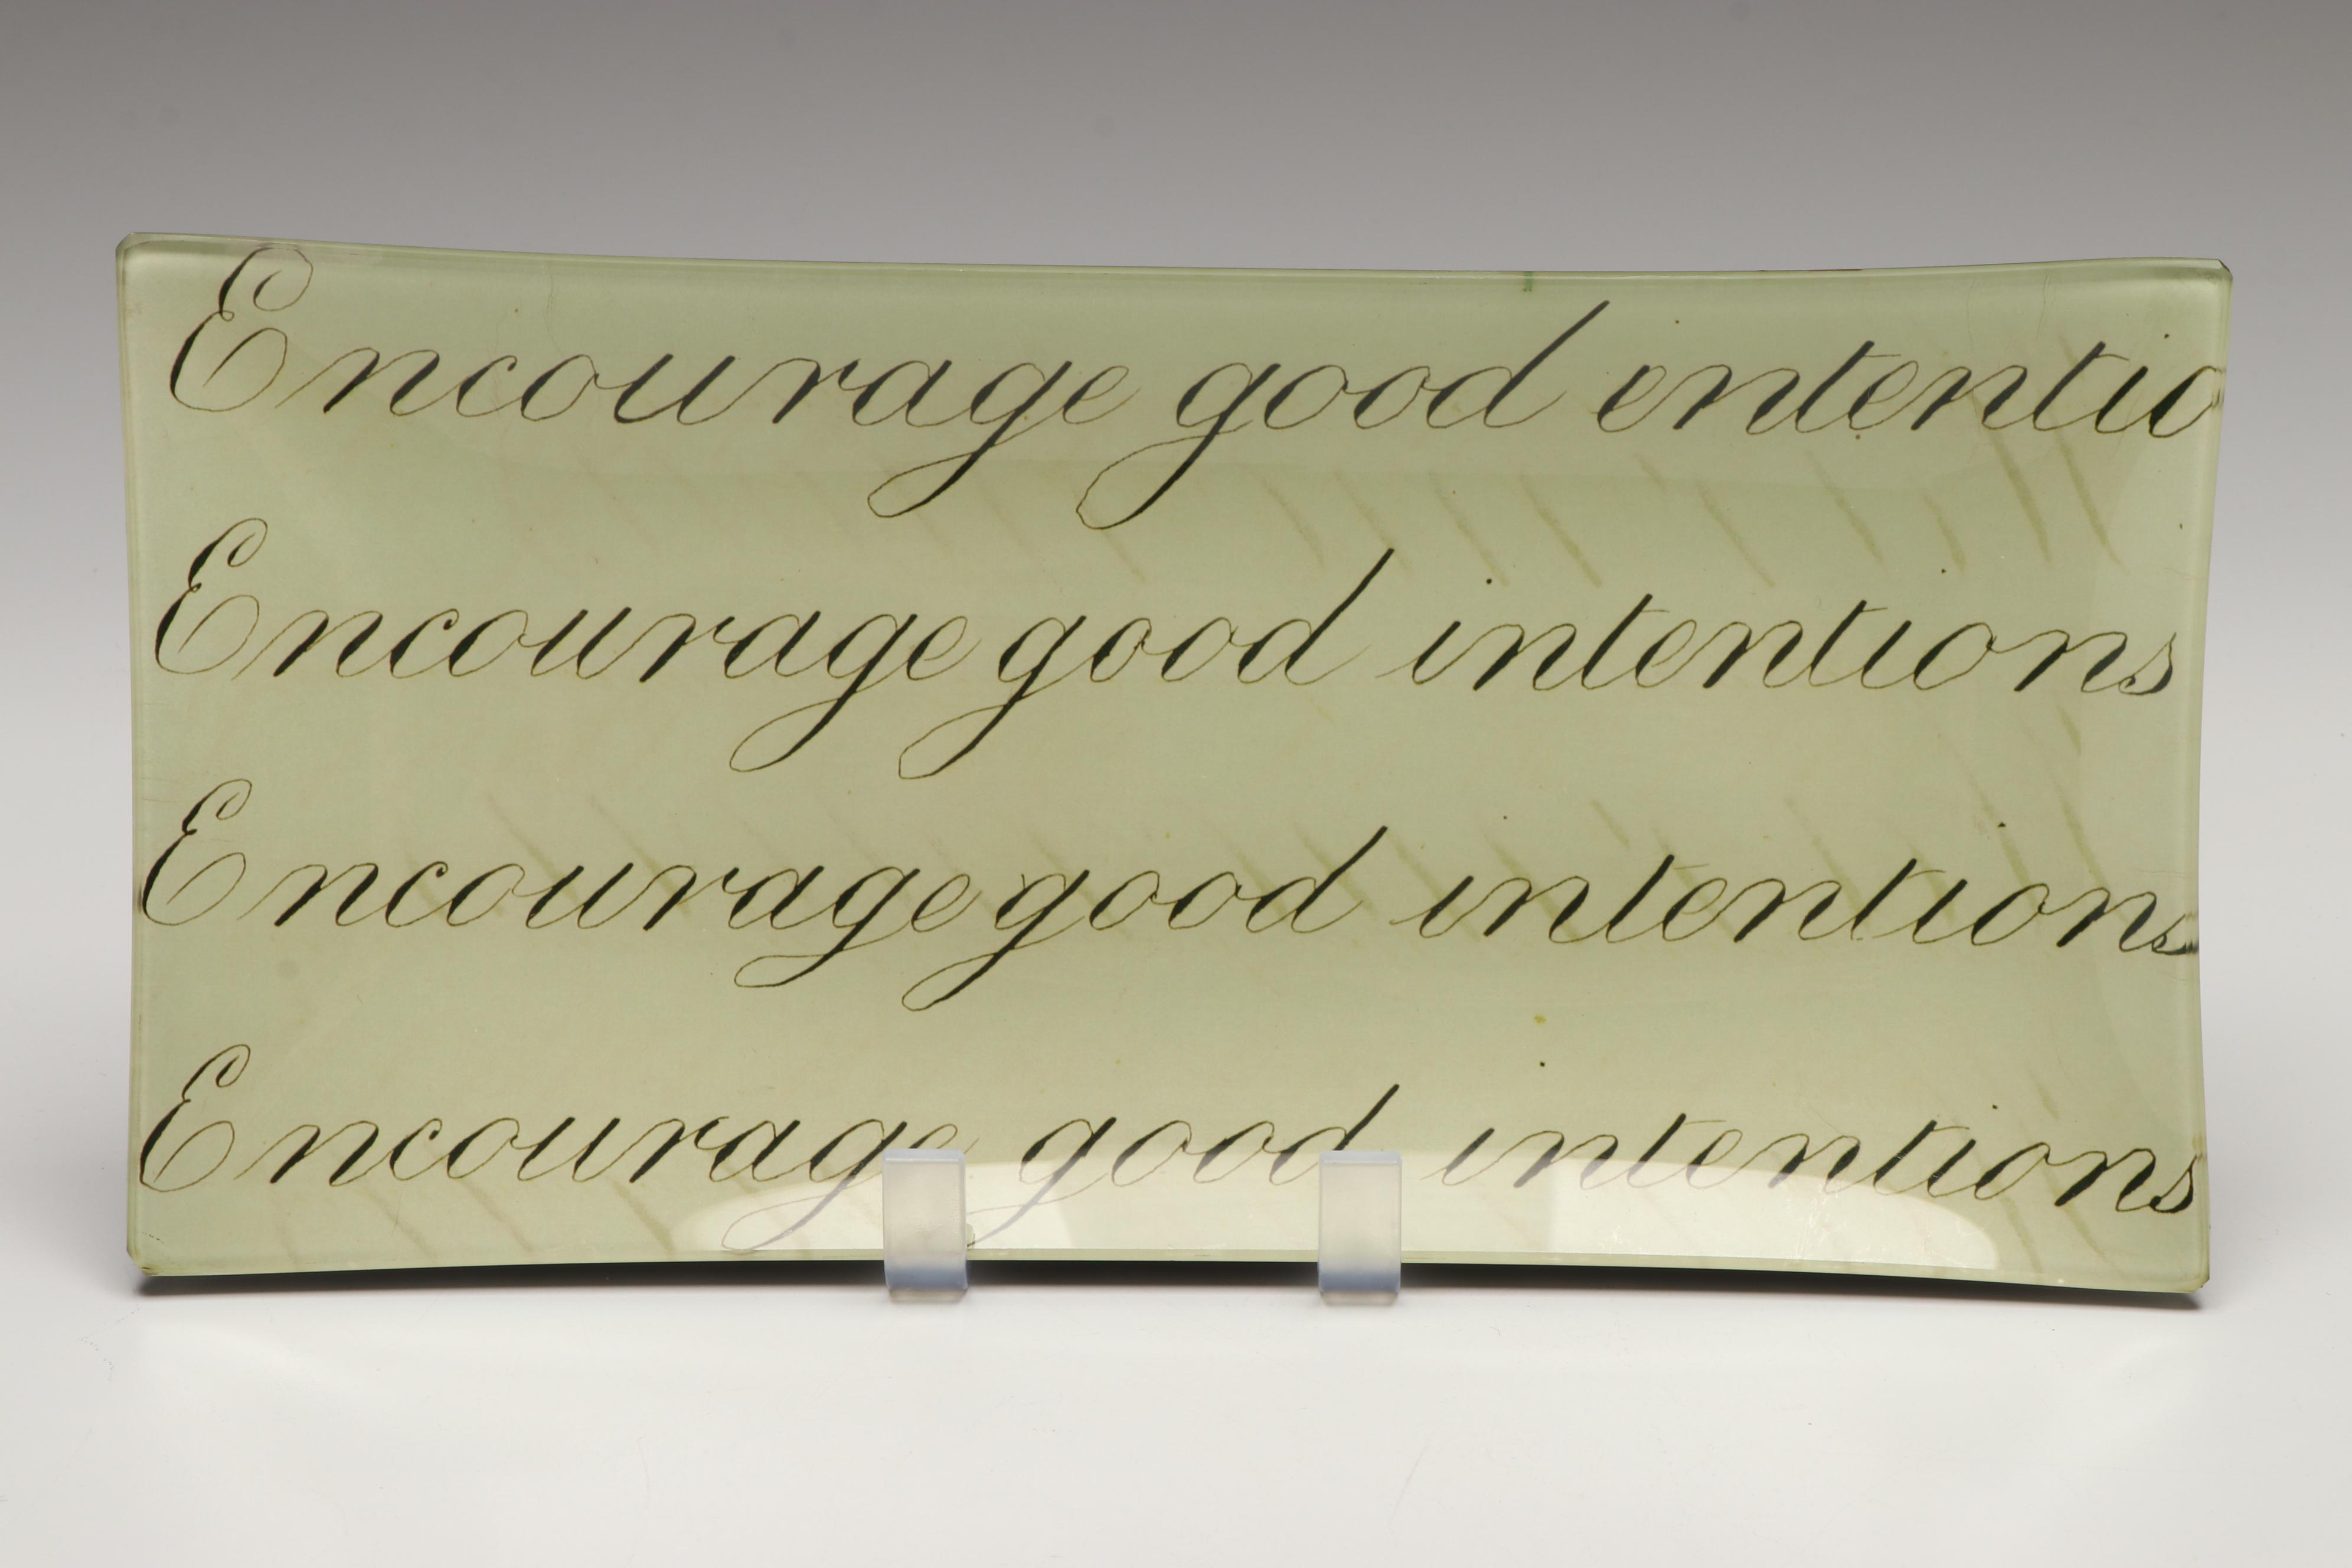 Encourage good ententio
Encourage good intentions
Encourage good intentions
Encourage good intentions